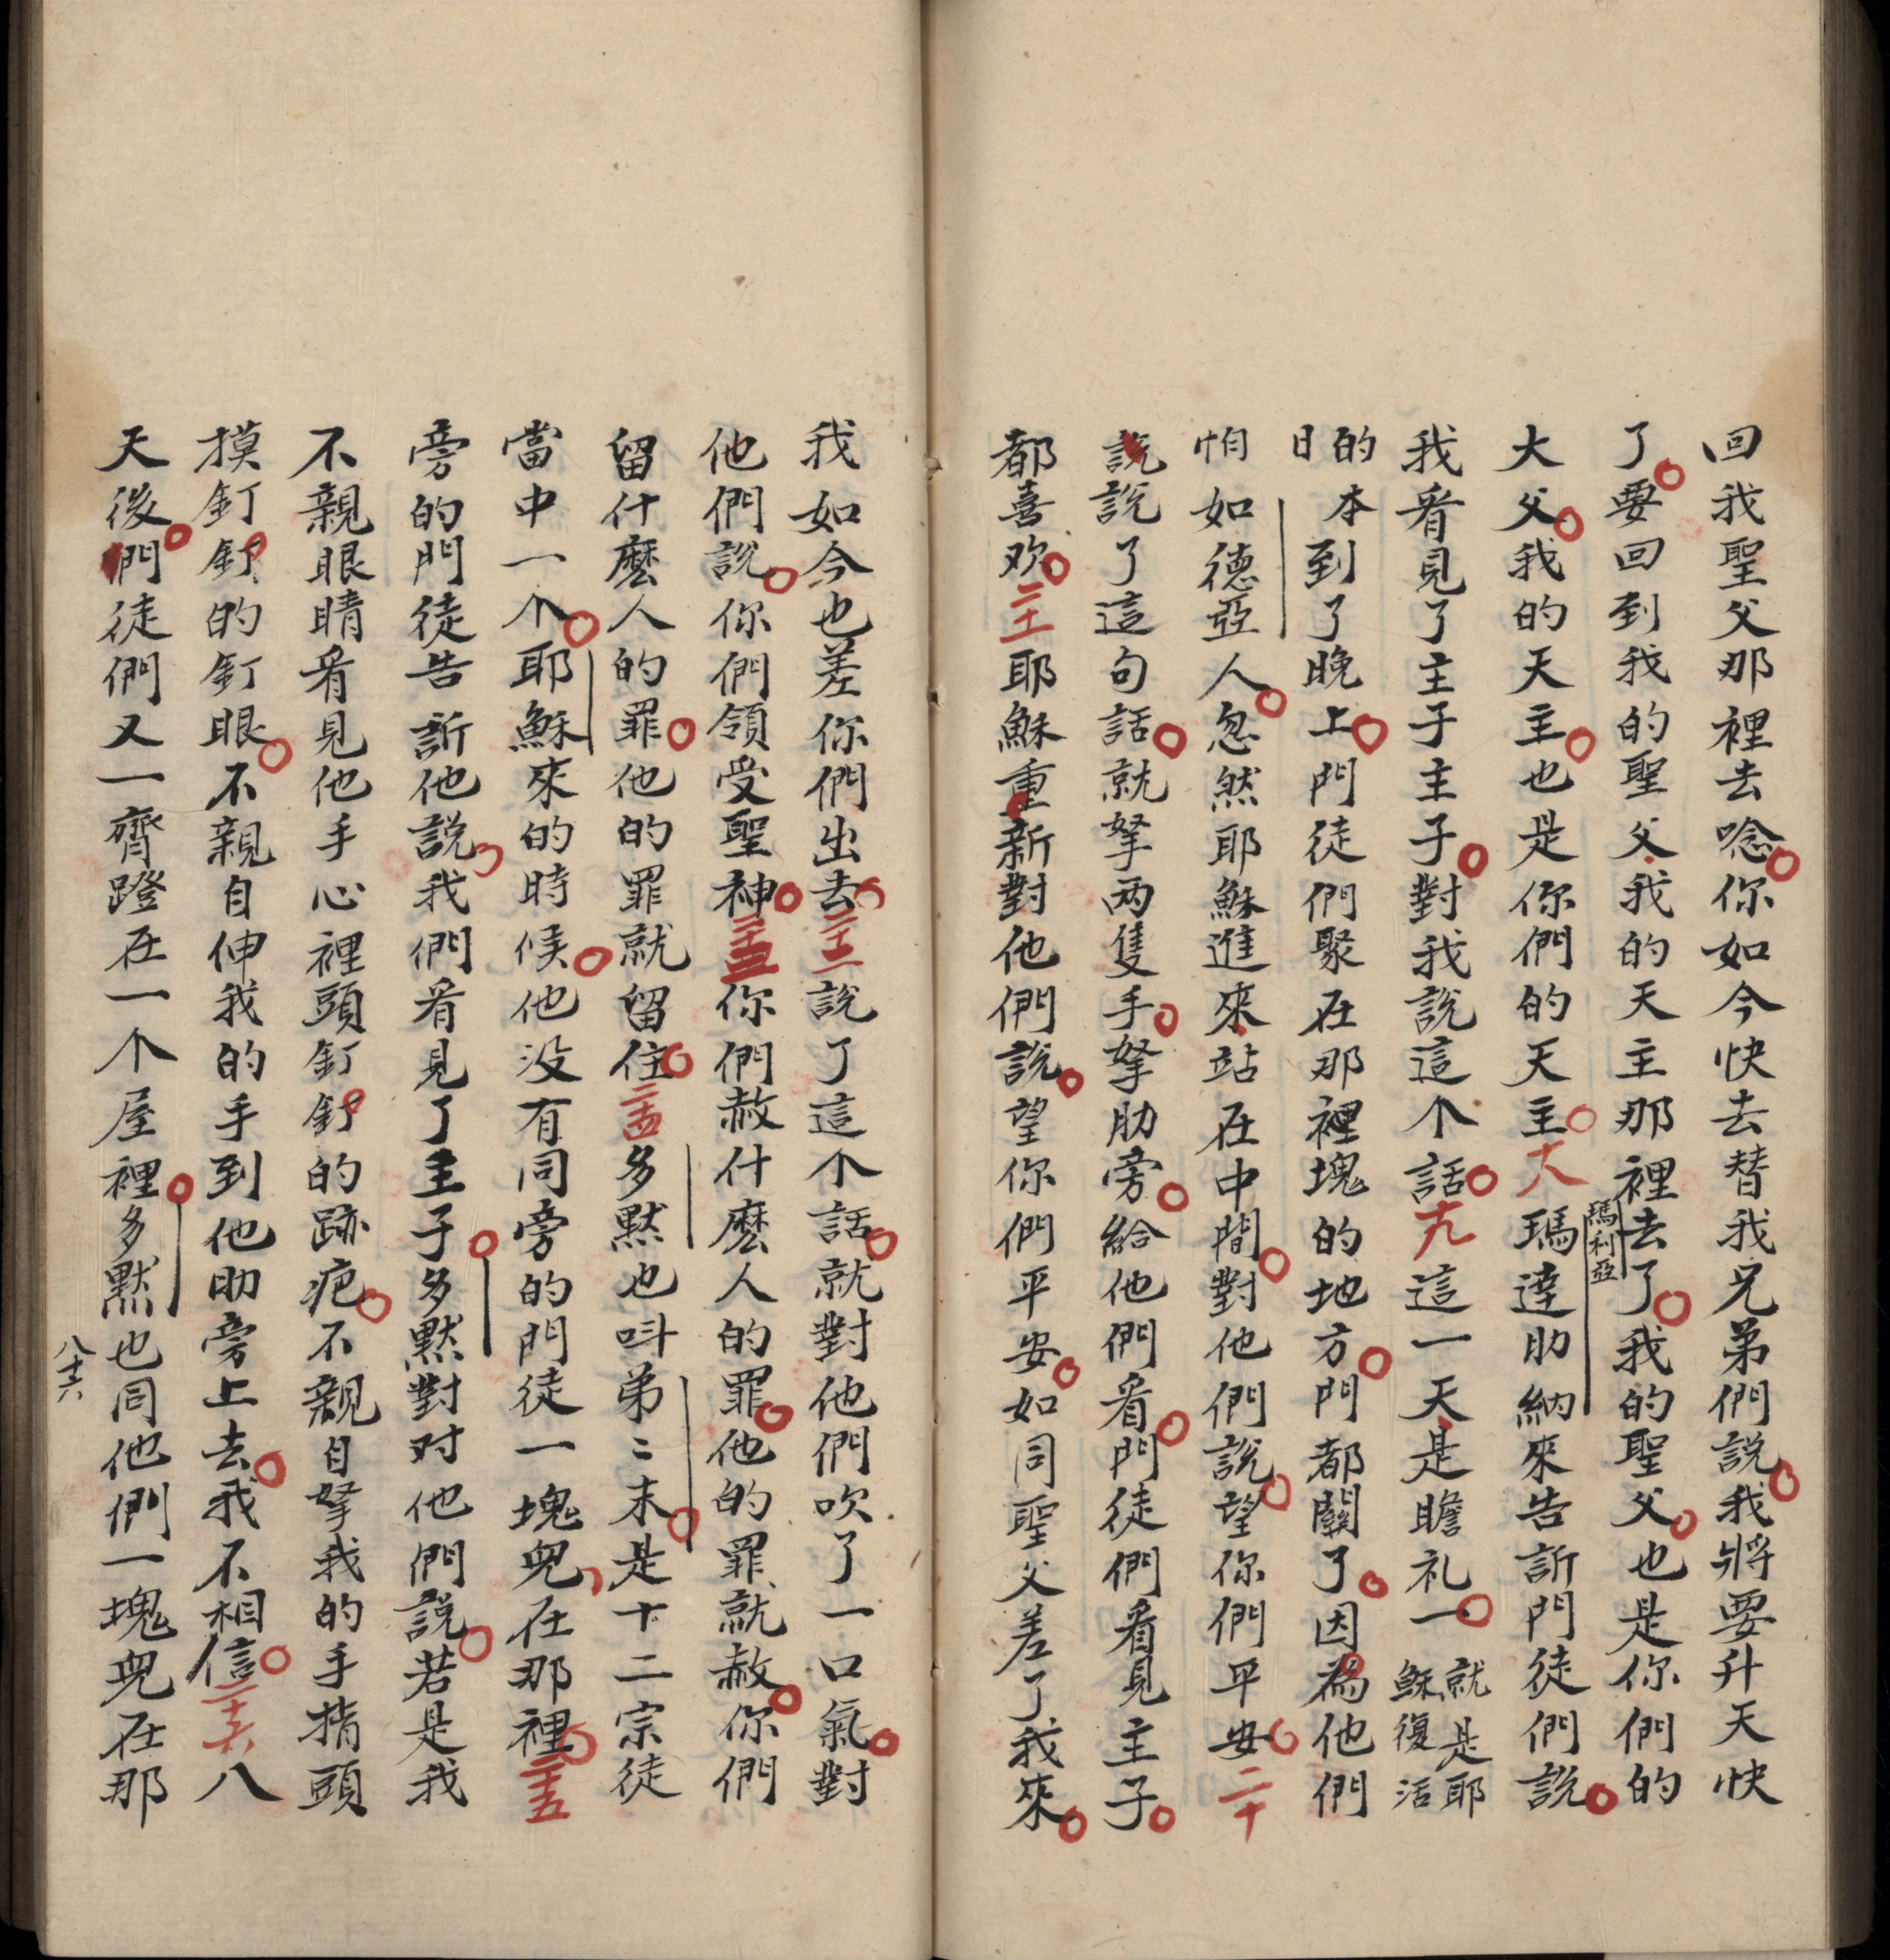 回我聖父那裡去唸你如今快去替我兄弟們説我將要升天快
了要回到我的聖父我的天主那裡去了我的聖父也是你們的
大父我的天主也是你們的天主十八瑪利亞瑪達肋納來告訴門徒們説
我看見了主子主子對我説這个話十九這一天是瞻礼一就是耶穌復活
的日本到了晚上門徒們聚在那裡塊的地方門都關了因為他們
怕如德亞人忽然耶穌進來站在中間對他們説望你們平安二十
説説了這句話就拏两隻手拏肋旁給他們看門徒們看見主子
都喜欢二十一耶穌重新對他們説望你們平安如同聖父差了我來
我如今也差你們出去二十二説了這个話就對他們吹了一口氣對
他們説你們領受聖神二十三你們赦什麼人的罪他的罪就赦你們
留什麼人的罪他的罪就留住二十四多黙也呌弟〻末是十二宗徒
當中一个耶穌來的時候他没有同旁的門徒一塊兒在那裡二十五
旁的門徒告訴他説我們看見了主子多黙對对他們説若是我
不親眼睛看見他手心裡頭釘釘的跡疤不親自拏我的手指頭
摸釘釘的釘眼不親自伸我的手到他肋旁上去我不相信二十六八
天後門徒們又一齊蹬在一个屋裡多黙也同他們一塊兒在那
八十六